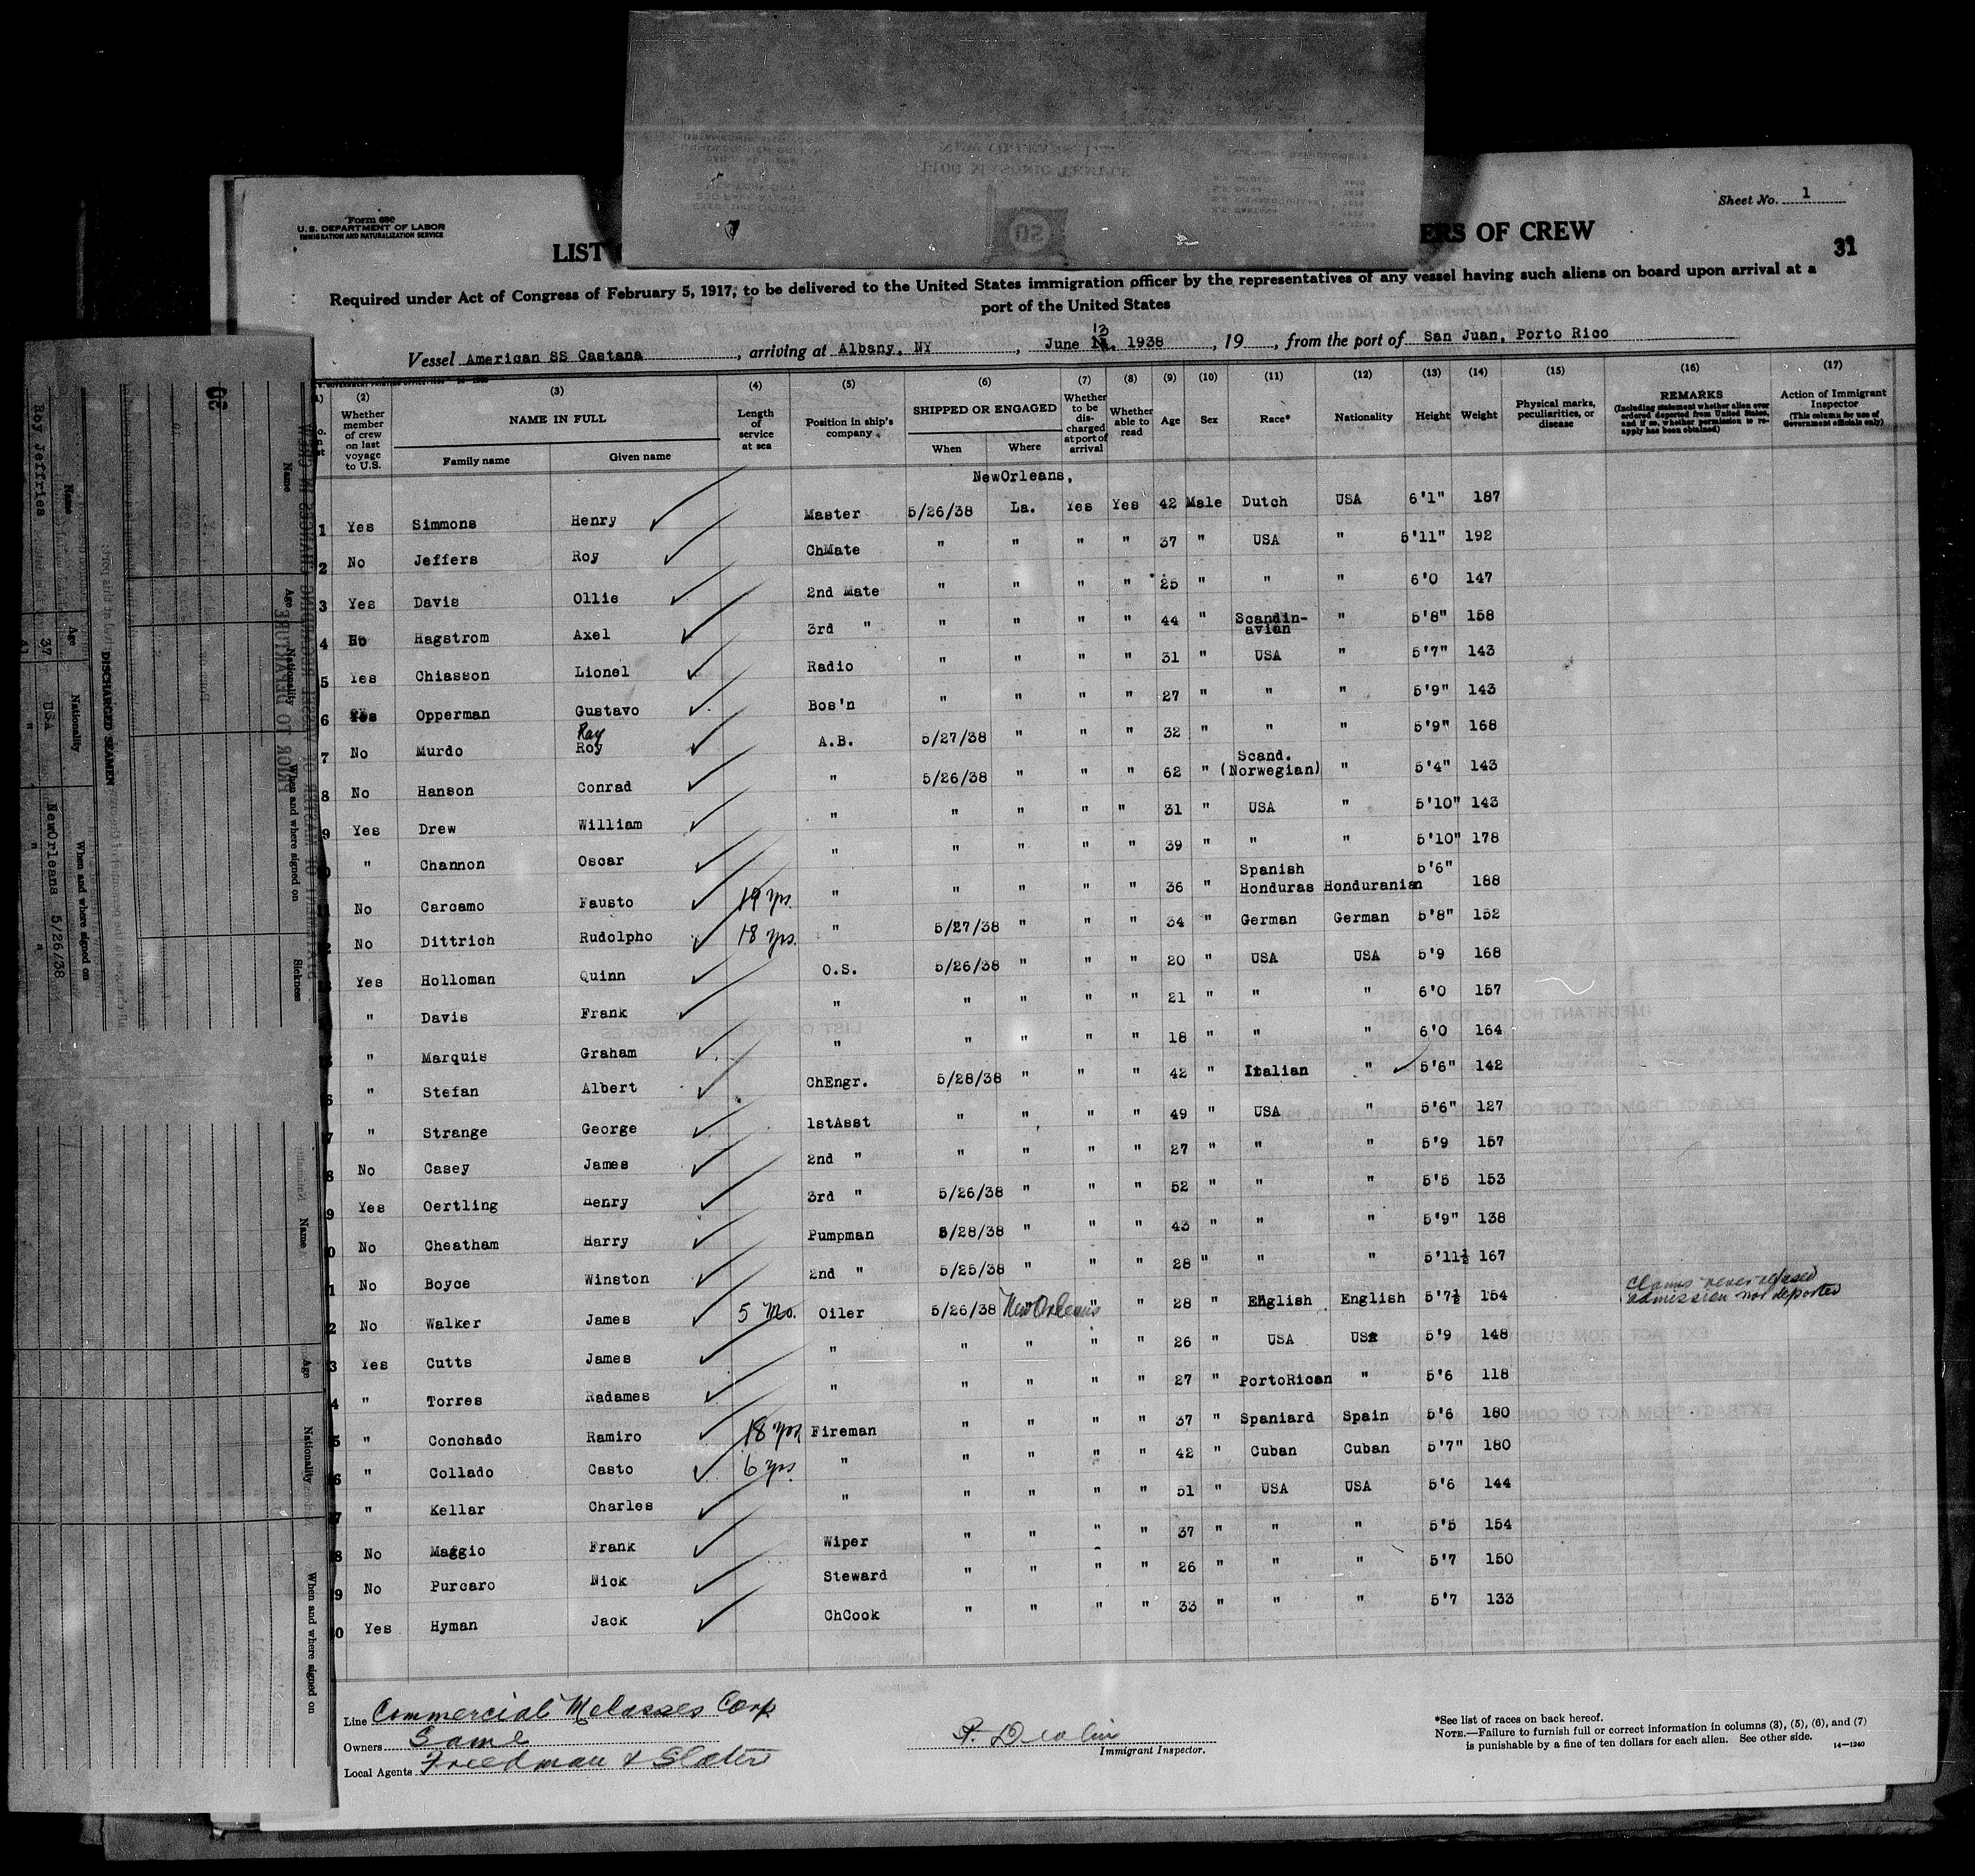 Sheet No. 1
Form 680
U.S. DEPARTMENT OF LABOR
IMMIGRATION AND NATURALIZATION SERVICE
LIST ERS OF CREW
31
Required under Act of Congress of February 5, 1917, to be delivered to the United States immigration officer by the representatives of any vessel having such aliens on board upon arrival at a
port of the United States
Vessel American SS Castana, arriving at Albany, NY, June 13, 1938, 19, from the port of San Juan, Porto Rico
(2) (3) (4) (5) (6) (7) (8) (9) (10) (11) (12) (13) (14) (15) (16) (17)
Whether member of crew on last voyage to U.S. NAME IN FULL Family name Given name Length of service at sea Position in ship's company SHIPPED OR ENGAGED When Where Whether to be discharged at port of arrival Whether able to read Age Sex Race* Nationality Height Weight Physical marks, peculiarities, or disease REMARKS (Including statement whether alien ever ordered deported from United States, and if so, whether permission to reapply has been obtained) Action of Immigrant Inspector (This column for use of Government officials only)
NewOrleans,
1 Yes Simmons Henry Master 5/26/38 La. Yes Yes 42 Male Dutch USA 6'1" 187
2 No Jeffers Roy ChMate " " " " 37 " USA " 5'11" 192
3 Yes Davis Ollie 2nd Mate " " " " 25 " " " 6'0 147
4 No Hagstrom Axel 3rd " " " " " 44 " Scandin-avian " 5'8" 158
5 Yes Chiasson Lionel Radio " " " " 31 " USA " 5'7" 143
6 Yes Opperman Gustavo Bos'n " " " " 27 " " " 5'9" 143
Ray
7 No Murdo Roy A.B. 5/27/38 " " " 32 " " " 5'9" 168
8 No Hanson Conrad " 5/26/38 " " " 62 " Scand. (Norwegian) " 5'4" 143
9 Yes Drew William " " " " " 31 " USA " 5'10" 143
0 " Channon Oscar " " " " " 39 " " " 5'10" 178
No Carcamo Fausto 19 yrs. " " " " " 36 " Spanish Honduras Honduranian 5'6" 188
2 No Dittrich Rudolpho 18 yrs. " 5/27/38 " " " 34 " German German 5'8" 152
Yes Holloman Quinn O.S. 5/26/38 " " " 20 " USA USA 5'9 168
" Davis Frank " " " " " 21 " " " 6'0 157
5 " Marquis Graham " " " " " 18 " " " 6'0 164
6 " Stefan Albert ChEngr. 5/28/38 " " " 42 " Italian " 5'6" 142
7 " Strange George 1stAsst " " " " 49 " USA " 5'6" 127
8 No Casey James 2nd " " " " " 27 " " " 5'9 157
9 Yes Oertling Henry 3rd " 5/26/38 " " " 52 " " " 5'5 153
0 No Cheatham Harry Pumpman 5/28/38 " " " 43 " " " 5'9" 138
1 No Boyce Winston 2nd " 5/25/38 " " " 28 " " " 5'11½ 167
2 No Walker James 5 Mo. Oiler 5/26/38 New Orleans " " 28 " English English 5'7½ 154 Claims never refused admission nor deported
3 Yes Cutts James " " " " " 26 " USA USA 5'9 148
4 " Torres Radames " " " " " 27 " PortoRican " 5'6 118
5 " Conchado Ramiro 18 yrs Fireman " " " " 37 " Spaniard Spain 5'6 180
6 " Collado Casto 6 yrs " " " " " 42 " Cuban Cuban 5'7" 180
7 " Kellar Charles " " " " " 51 " USA USA 5'6 144
8 No Maggio Frank Wiper " " " " 37 " " " 5'5 154
9 No Purcaro Nick Steward " " " " 26 " " " 5'7 150
0 Yes Hyman Jack ChCook " " " " 33 " " " 5'7 133
Line Commercial Molasses Corp
Owners Same
Local Agents Friedman & Slater
P. Devlin
Immigrant Inspector.
*See list of races on back hereof.
NOTE.—Failure to furnish full or correct information in columns (3), (5), (6), and (7)
is punishable by a fine of ten dollars for each alien. See other side.
14—1240
DISCHARGED SEAMEN
Name Age Nationality When and where signed on
Roy Jeffries 37 USA NewOrleans 5/26/38
Name Age Nationality When and where signed on Sickness
PRIOR TO DEPARTURE
Name Age Nationality When and where signed on